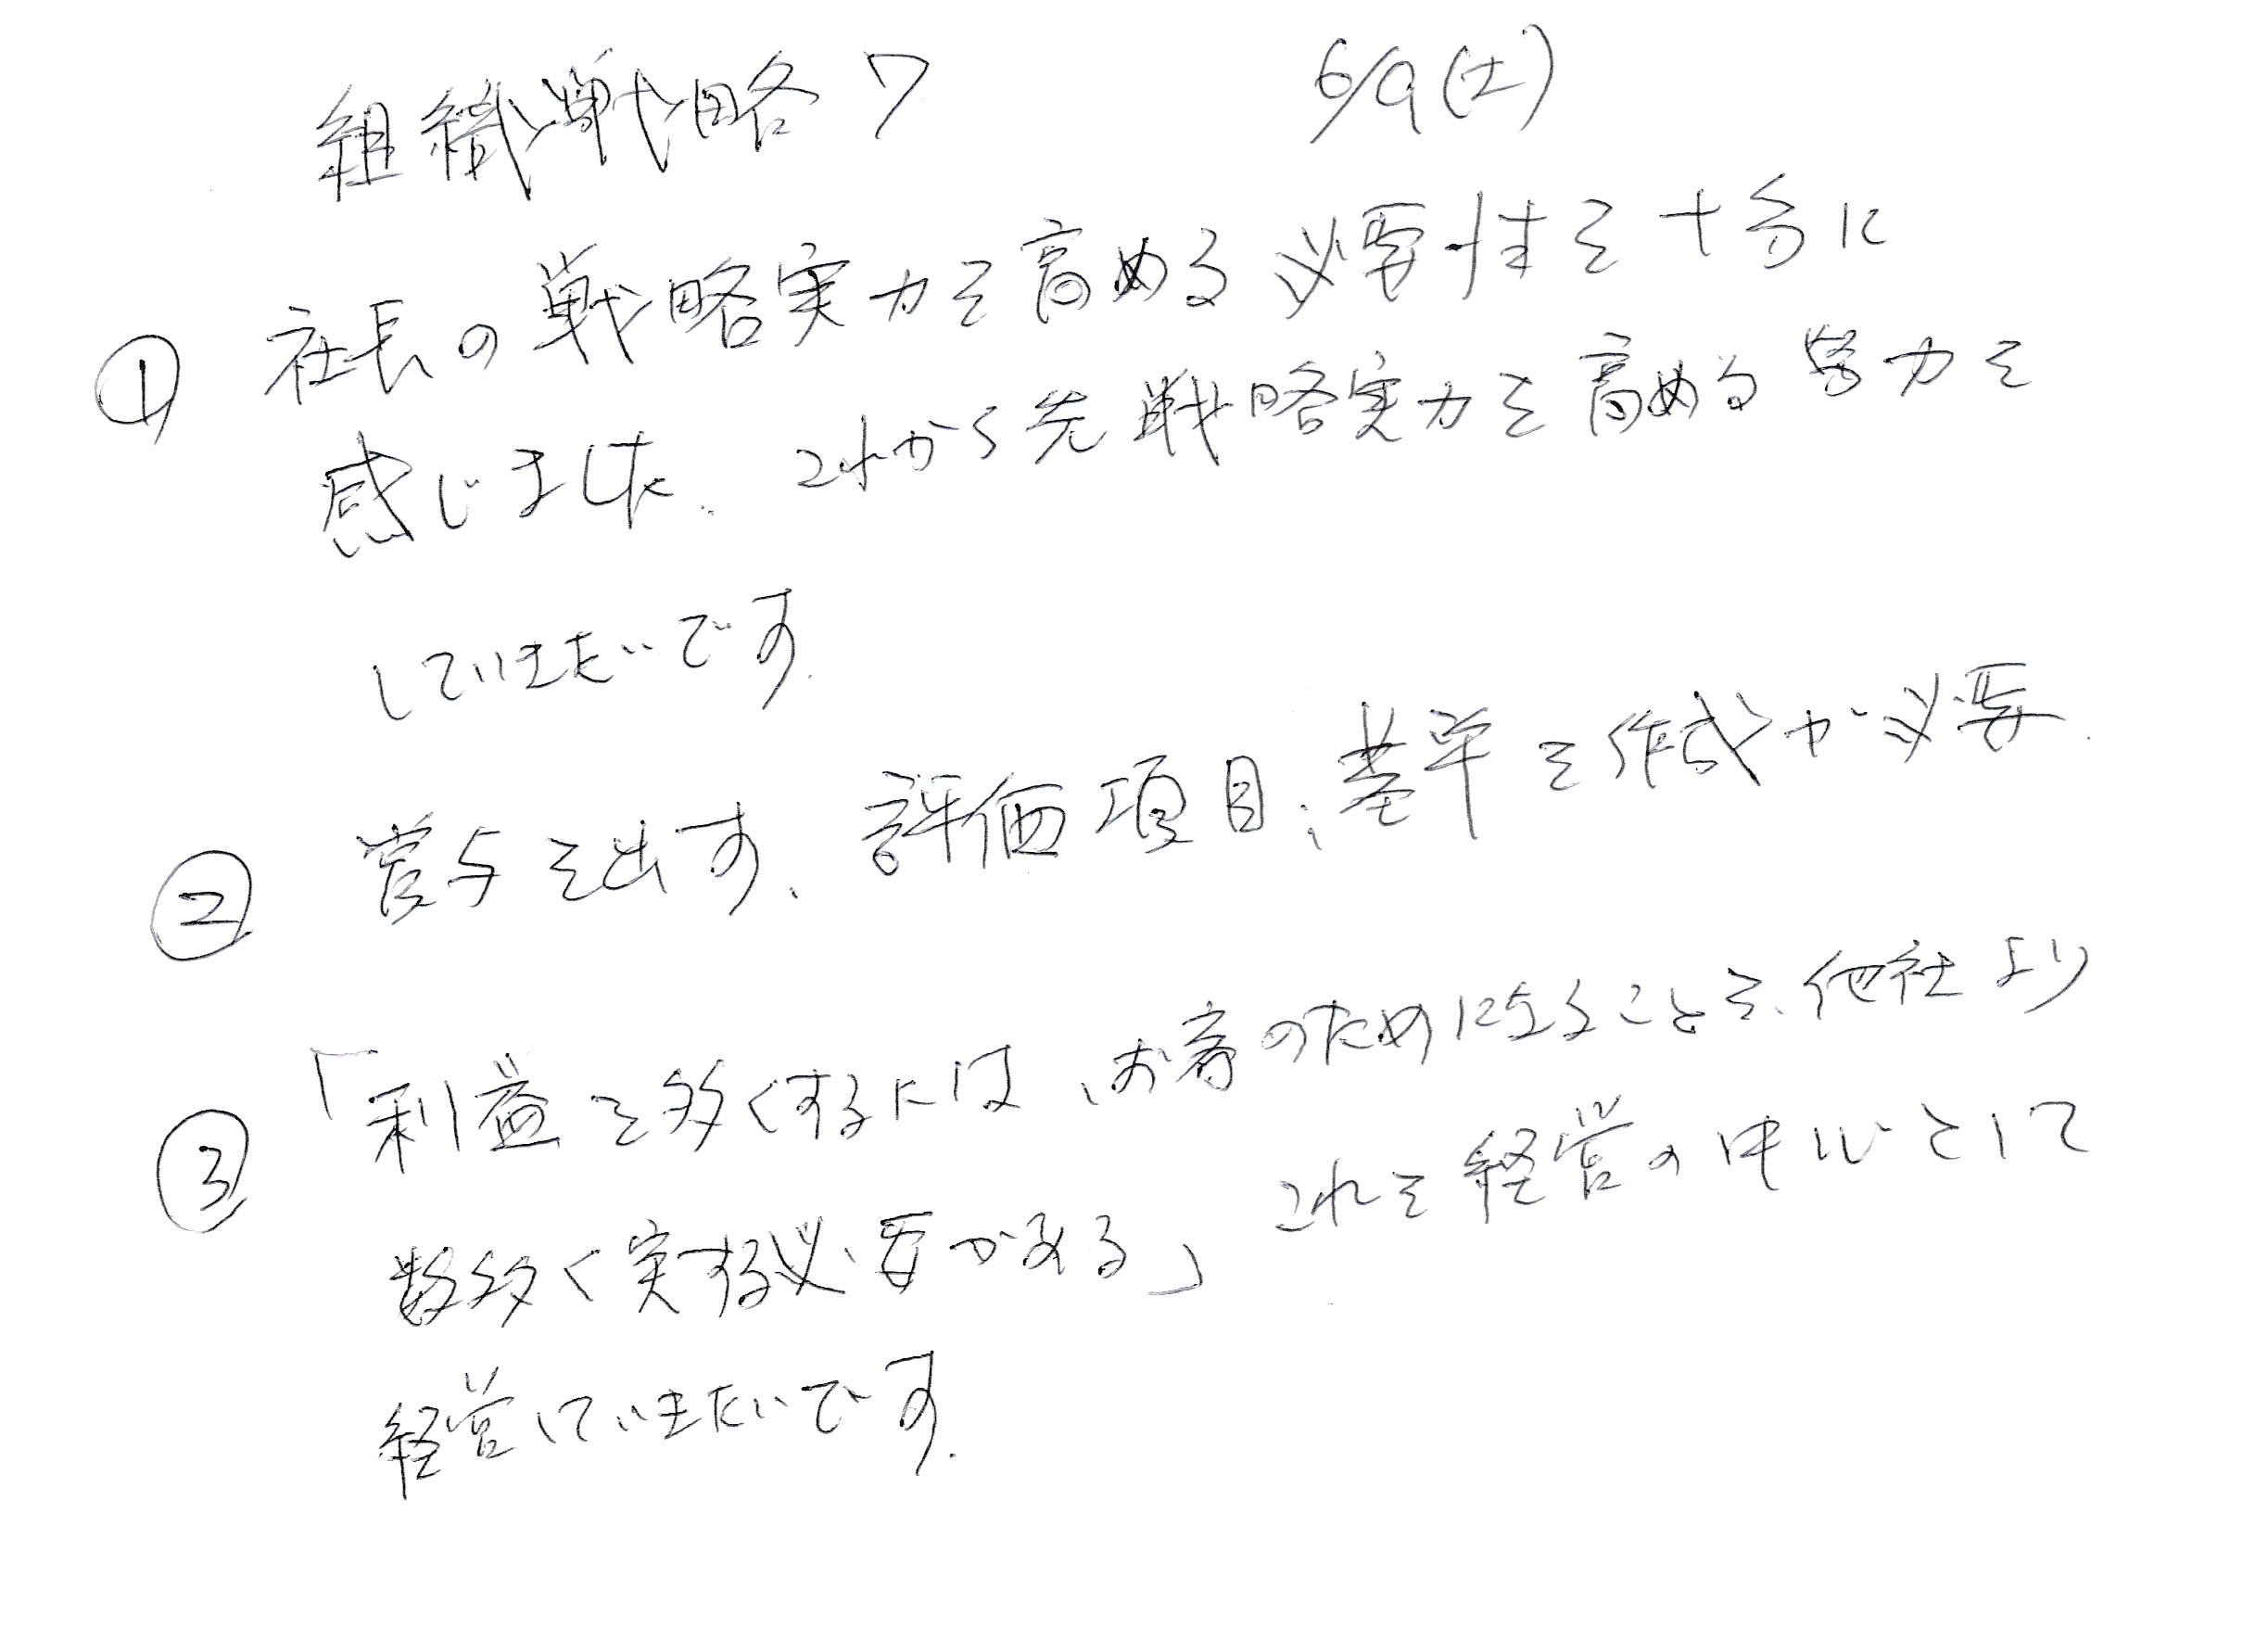 組織戦略7 6/9(土)
① 社長の戦略実力を高める必要性を十分に
感じました。これから先戦略実力を高める努力を
していきたいです。
② 賞与を出す、評価項目;基準を作成が必要.
③ 「利益を多くするには、お客のためになることを、他社より
数多く実する必要がある」これを経営の中心として
経営していきたいです.